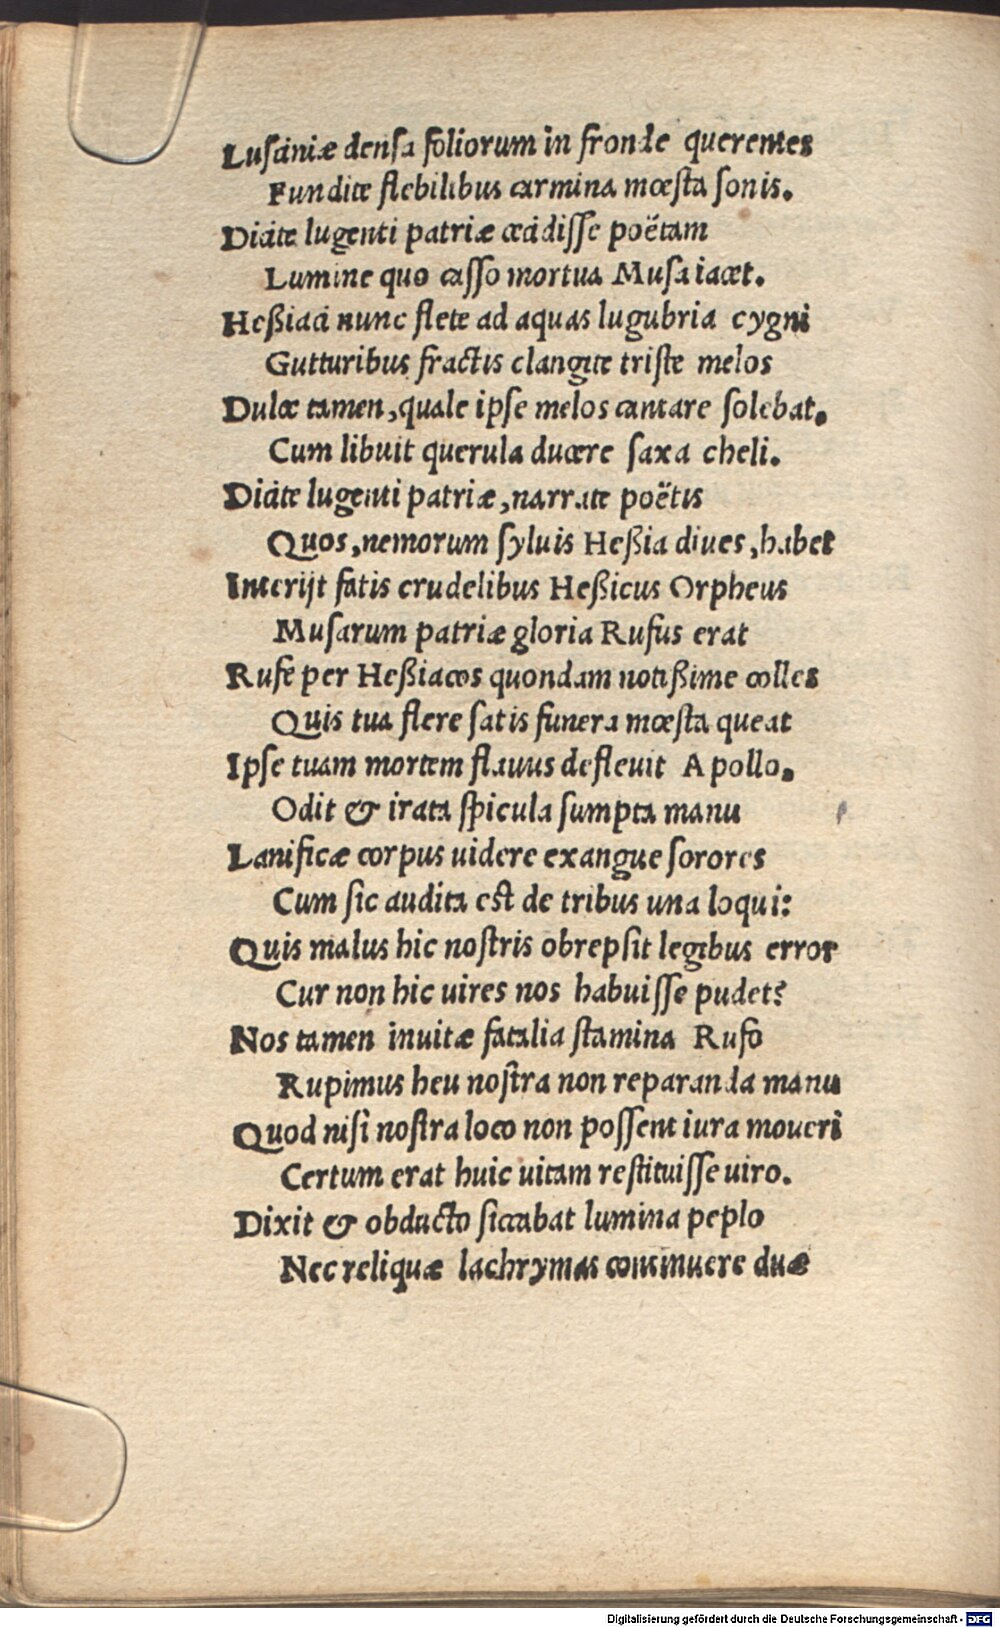 Lusciniæ densa foliorum in fronde querentes
Fundite flebilibus carmina mœsta sonis.
Dicite lugenti patriæ cecidisse poëtam
Lumine quo casso mortua Musa iacet.
Heßiaci nunc flete ad aquas lugubria cygni
Gutturibus fractis clangite triste melos
Dulce tamen, quale ipse melos cantare solebat.
Cum libuit querula ducere saxa cheli.
Dicite lugenti patriæ, narrate poëtis
Quos, nemorum syluis Heßia diues, habet
Interijt fatis crudelibus Heßicus Orpheus
Musarum patriæ gloria Rufus erat
Rufe per Heßiacos quondam notißime colles
Quis tua flere satis funera mœsta queat
Ipse tuam mortem flauus defleuit Apollo.
Odit & irata spicula sumpta manu
Lanificæ corpus uidere exangue sorores
Cum sic audita est de tribus una loqui:
Quis malus hic nostris obrepsit legibus error
Cur non hic uires nos habuisse pudet?
Nos tamen inuitæ fatalia stamina Rufo
Rupimus heu nostra non reparanda manu
Quod nisi nostra loco non possent iura moueri
Certum erat huic uitam restituisse uiro.
Dixit & obducto siccabat lumina peplo
Nec reliquæ lachrymas continuere duæ
Digitalisierung gefördert durch die Deutsche Forschungsgemeinschaft - DFG